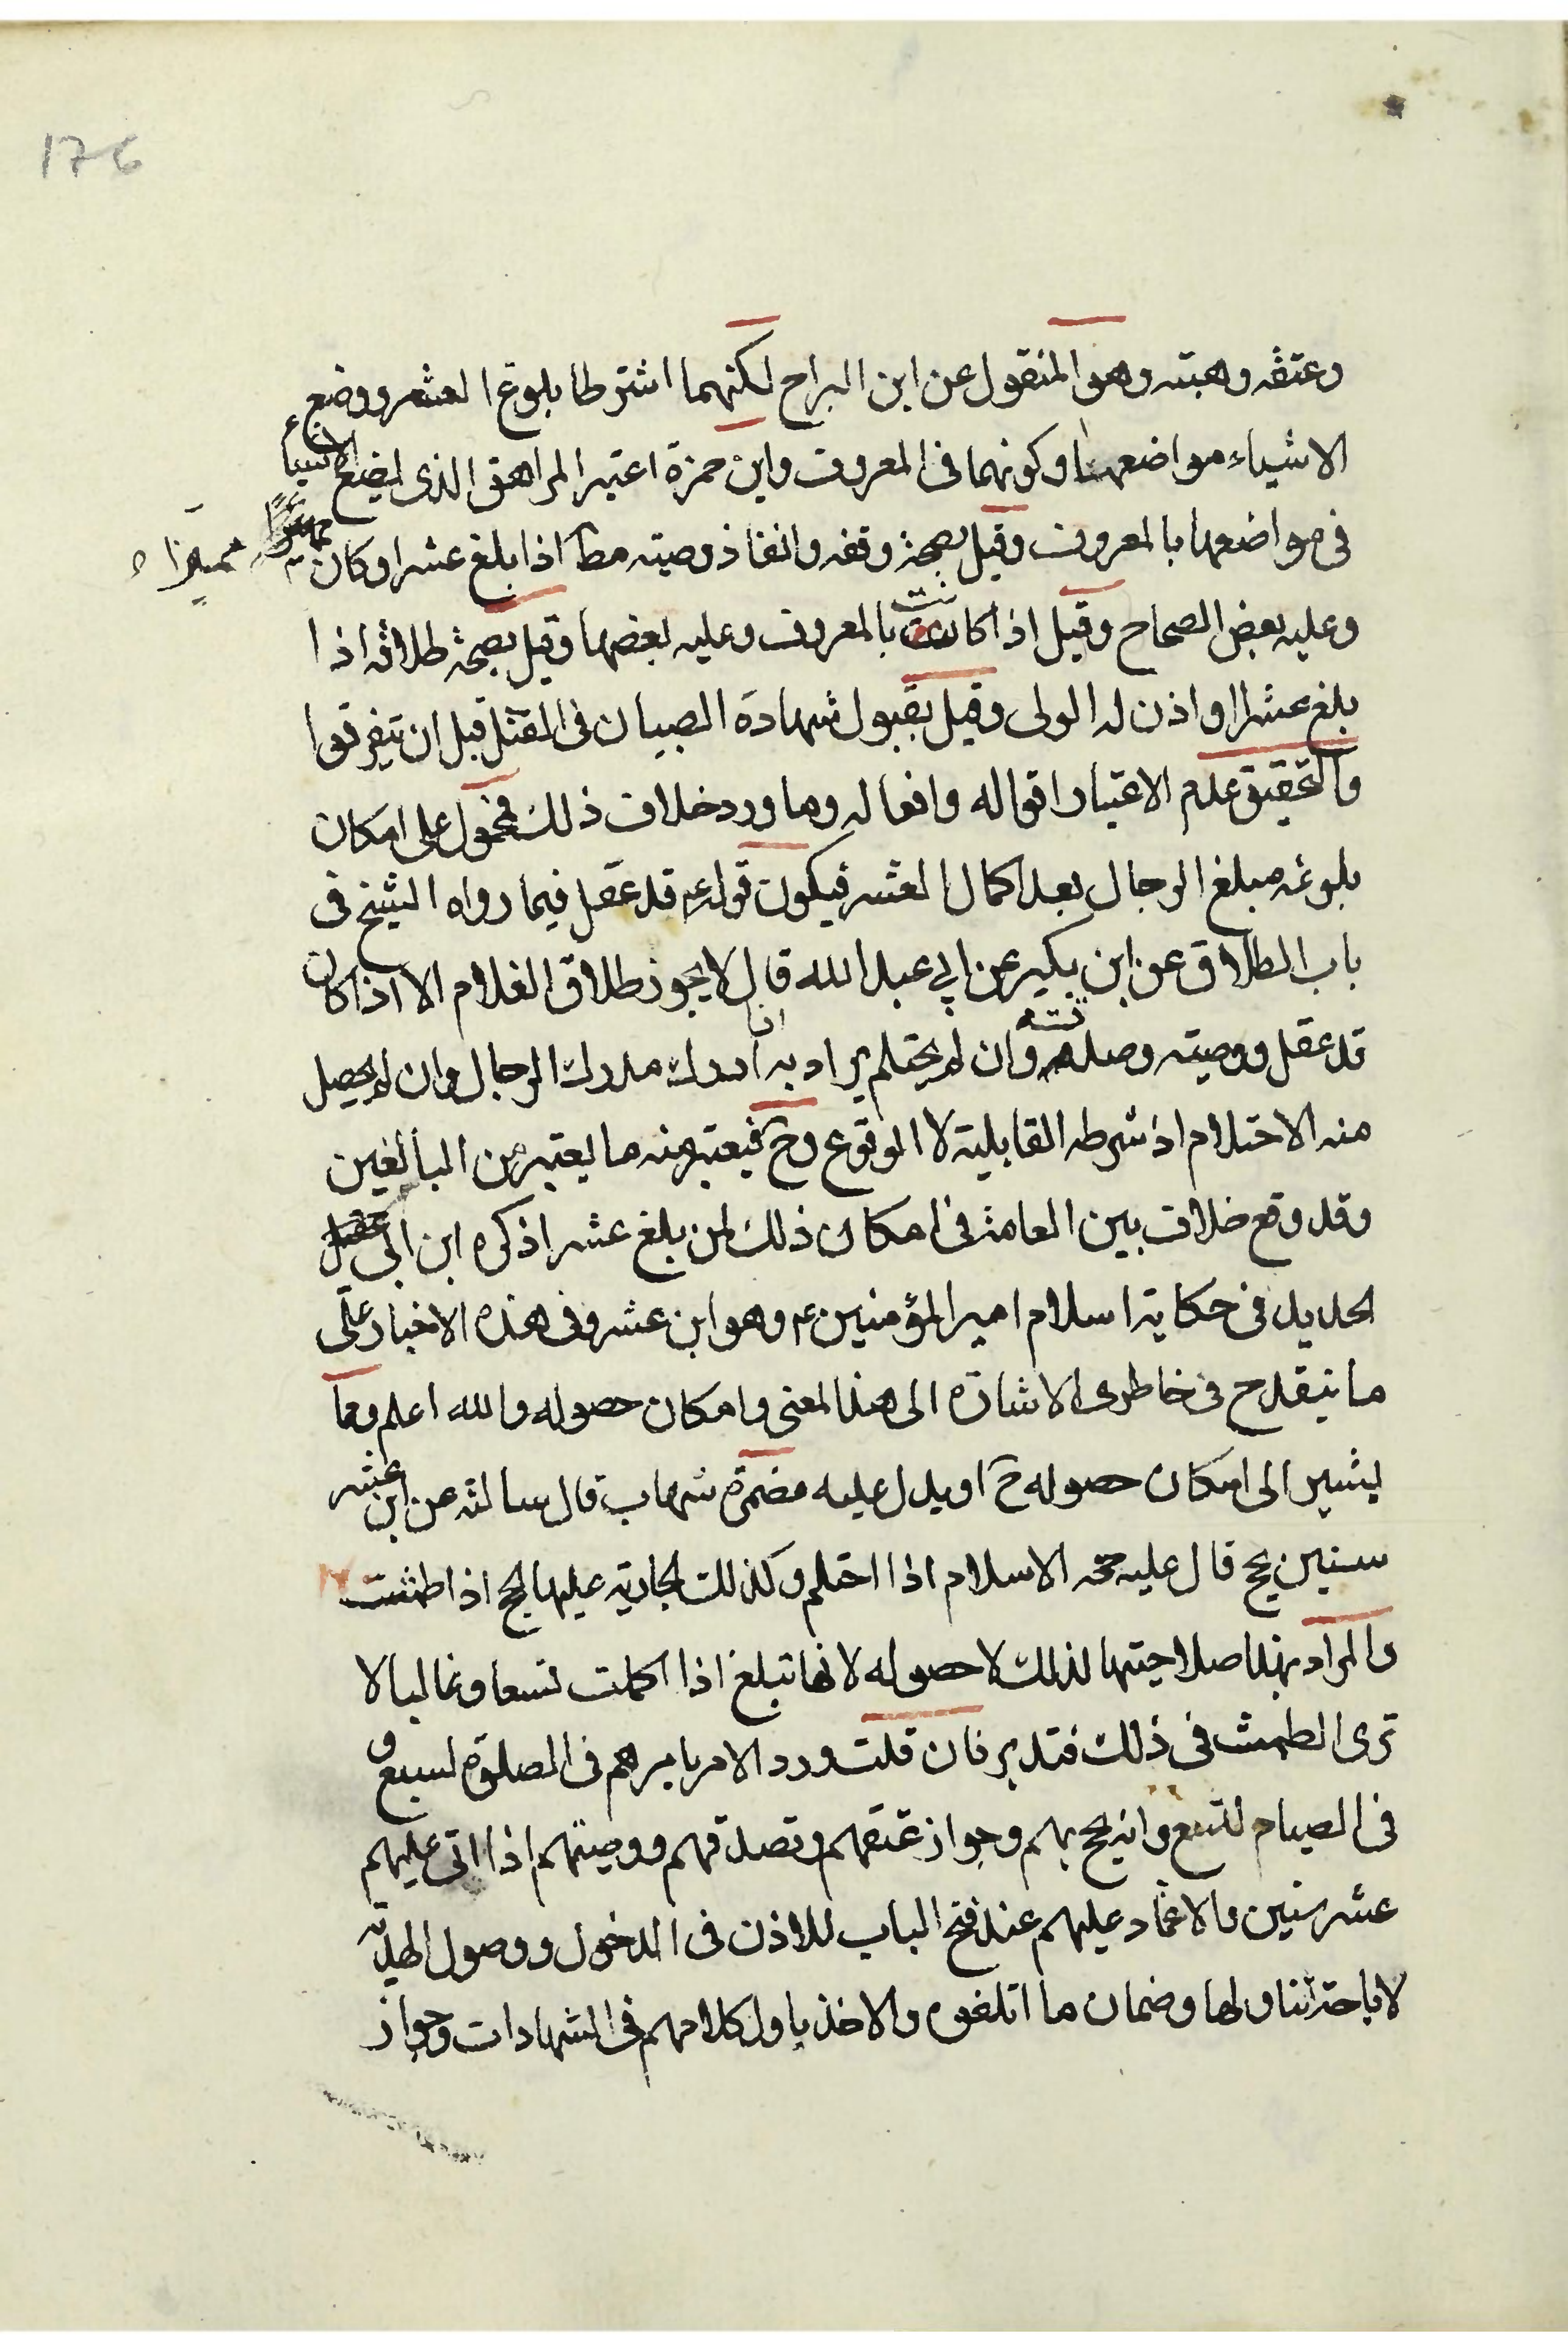 176
وعتقه وهبته وهو المنقول عن ابن البراج لكنهما اشترطا بلوغ العشر ووضع
الاشياء مواضعها وكونهما فى المعروف وابن حمزة اعتبر المراهق الذى يضع الاشياء
فى مواضعها بالمعروف وقيل بصحة وقفه وانفاذ وصيته مط اذا بلغ عشرا وكان مميزا
وعليه بعض الصحاح وقيل اذا كانت بالمعروف وعليه بعضها وقيل بصحة طلاقه اذا
بلغ عشرا او اذن له الولى وقيل بقبول شهادة الصبيان فى القتل قبل ان يتفرقوا
والتحقيق عدم الاعتبار اقواله وافعاله وما ورد خلاف ذلك فمحمول على امكان
بلوغه مبلغ الرجال بعد اكمال العشر فيكون قوله ع قد عقل فيما رواه الشيخ فى
باب الطلاق عن ابن بكير عن ابى عبد الله قال لا يجوز طلاق الغلام الا اذا كان
قد عقل ووصيته وصدقته وان لم يحتلم يراد به اذا ادرك مدرك الرجال وان لم يحصل
منه الاحتلام اذ شرطه القابلية لا الوقوع وح فيعتبر منه ما يعتبر من البالغين
وقد وقع خلاف بين العامة فى امكان ذلك لمن بلغ عشرا ذكره ابن ابى
الحديد فى حكاية اسلام امير المؤمنين ع وهو ابن عشر وفى هذه الاخبار على
ما ينقدح فى خاطرى الاشارة الى هذا المعنى وامكان حصوله والله اعلم ومما
يشير الى امكان حصوله ح او يدل عليه مضمرة شهاب قال سالته عن ابن عشر
سنين يحج قال عليه حجة الاسلام اذا احتلم وكذلك الجارية عليها الحج اذا طمثت
والمراد بهذا صلاحيتها لذلك لا حصوله لانها تبلغ اذا اكملت تسعا وغالبا لا
ترى الطمث فى ذلك فتدبر فان قلت ورد الامر بامرهم فى الصلوة لسبع و
فى الصيام لتسع وانه يحج بهم وجواز عتقهم وتصدقهم ووصيتهم اذا اتى عليهم
عشر سنين والاعتماد عليهم عند فتح الباب للاذن فى الدخول ووصول الهدية
لاباحة تناولها وضمان ما اتلفوه والاخذ باول كلامهم فى الشهادات وجواز